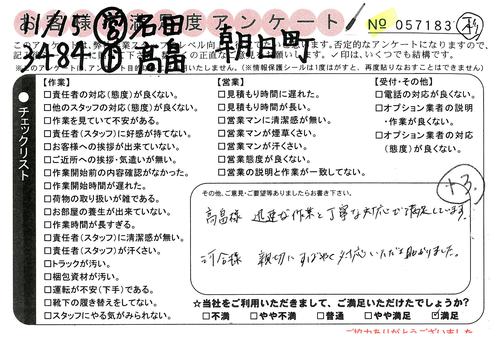 お客様満足度アンケート
11/15 名田
№ 057183
3484 高畠 朝日町
チェックリスト
【作業】
□責任者の対応(態度)が良くない。
□他のスタッフの対応(態度)が良くない。
□作業を見ていて不安がある。
□責任者(スタッフ)に好感が持てない。
□お客様への挨拶が出来ていない。
□ご近所への挨拶・気遣いが無い。
□作業開始前の内容確認がなかった。
□作業開始時間が遅れた。
□荷物の取り扱いが雑である。
□お部屋の養生が出来ていない。
□作業時間が長すぎる。
□責任者(スタッフ)に清潔感が無い。
□責任者(スタッフ)が汗くさい。
□トラックが汚い。
□梱包資材が汚い。
□運転が不安(下手)である。
□靴下の履き替えをしてない。
□スタッフにやる気がみられない。
【営業】
□見積もり時間に遅れた。
□見積もり時間が長い。
□営業マンに清潔感が無い。
□営業マンが煙草くさい。
□営業マンが汗くさい。
□営業態度が良くない。
□営業の説明と作業が一致してない。
【受付・その他】
□電話の対応が良くない。
□オプション業者の説明
・作業が良くない。
□オプション業者の対応
(態度)が良くない。
+3
その他、ご意見・ご要望等ありましたらお書き下さい。
高畠様 迅速な作業と丁寧な対応で満足しています。
河合様 親切にすばやく対応いただき助かりました。
☆当社をご利用いただきまして、ご満足いただけたでしょうか?
□不満 □やや不満 □普通 □やや満足 ☑満足
ご協力ありがとうございました